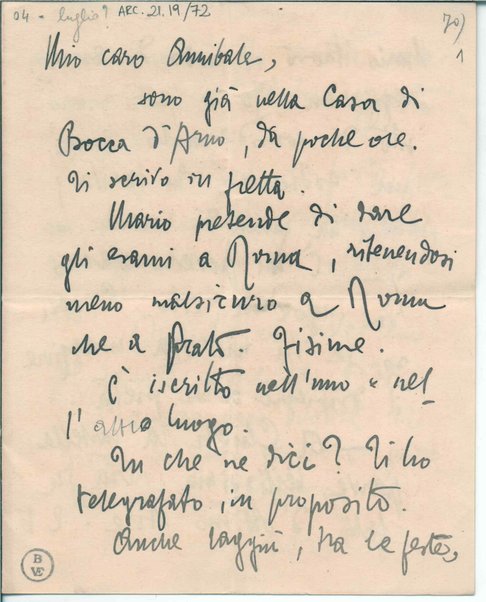 04 - luglio? ARC. 21.19/72
70)
1
Mio caro Annibale,
sono già nella Casa di
Bocca d'Arno, da poche ore.
Ti scrivo in fretta.
Mario pretende di dare
gli esami a Roma, ritenendosi
meno malsicuro a Roma
che a Prato. Fisime.
È iscritto nell'uno e nel
l'altro luogo.
Tu che ne dici? Ti ho
telegrafato, in proposito.
Anche laggiù, tra le feste,
B
VE